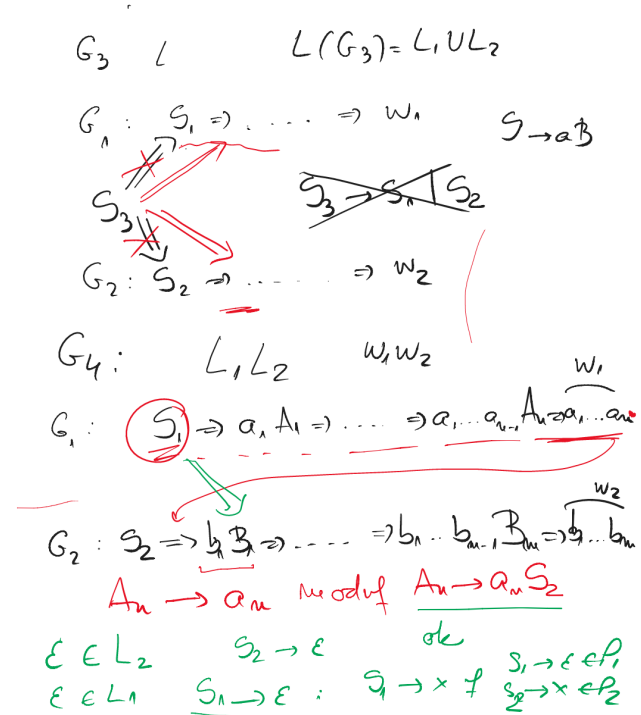 G₃ L L(G₃) = L₁ ∪ L₂
G₁ : S₁ ⇒ ..... ⇒ w₁ S → aB
S₃ S₃ → S₁ | S₂
G₂ : S₂ ⇒ ...... ⇒ w₂
G₄ : L₁L₂ w₁w₂ w₁
G₁ : S₁ ⇒ a₁A₁ ⇒ ..... ⇒ a₁...aₙ₋₁Aₙ ⇒ a₁...aₙ
w₂
G₂ : S₂ ⇒ b₁B₁ ⇒ ..... ⇒ b₁..bₘ₋₁Bₘ ⇒ b₁...bₘ
Aₙ → aₙ modif Aₙ → aₙS₂
ok
ε ∈ L₂ S₂ → ε S₁ → ε ∈ P₁
ε ∈ L₁ S₁ → ε : S₁ → x S₂ → x ∈ P₂